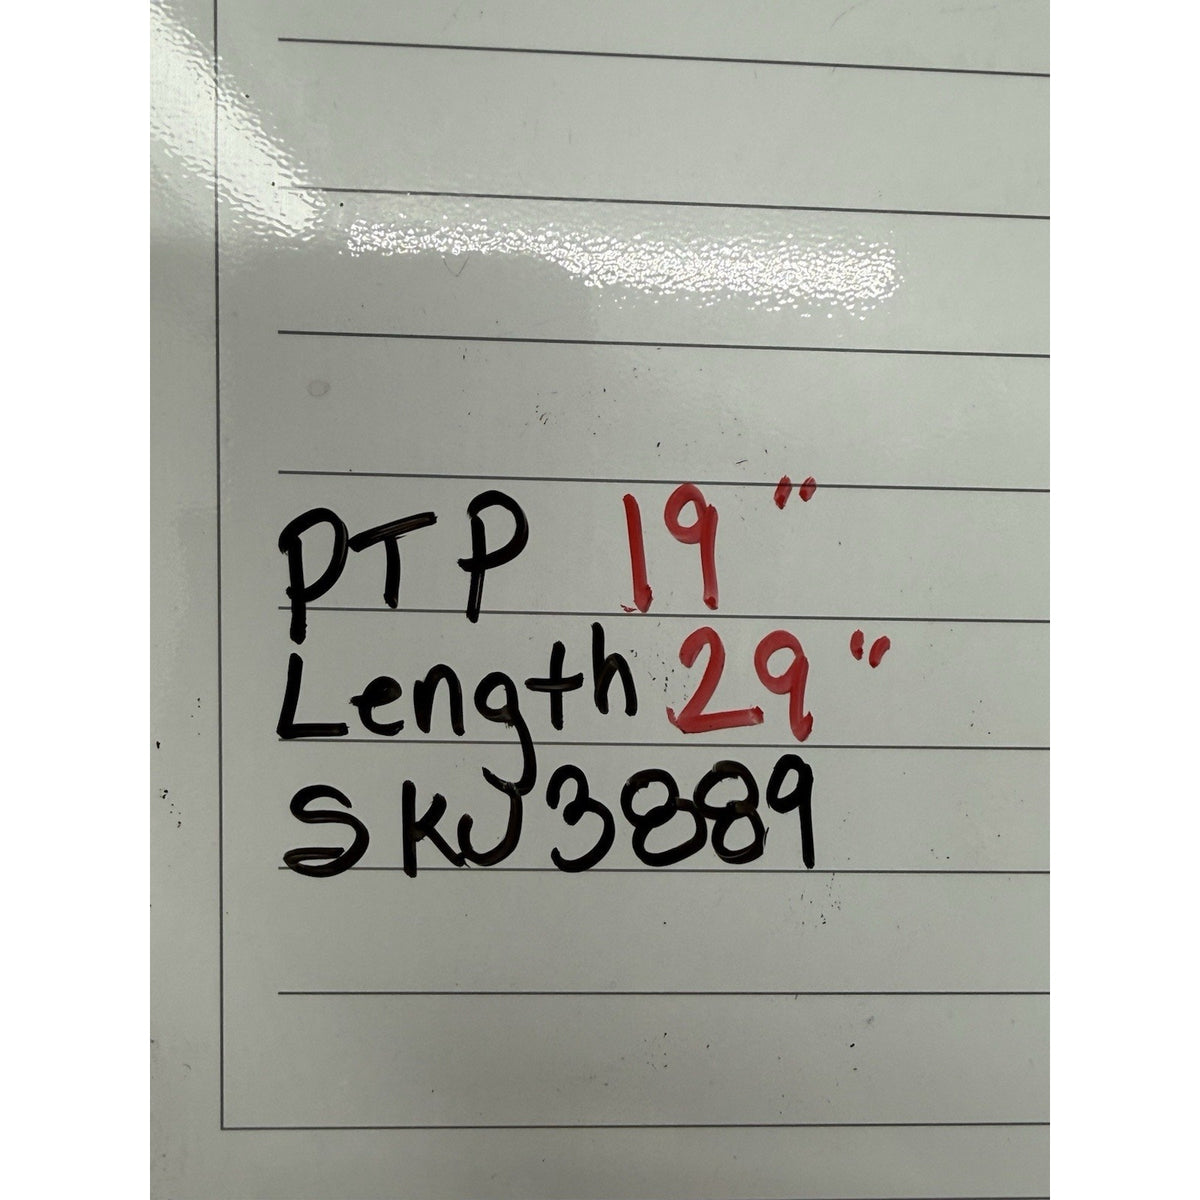 PTP 19"
Length 29"
SKU 3889